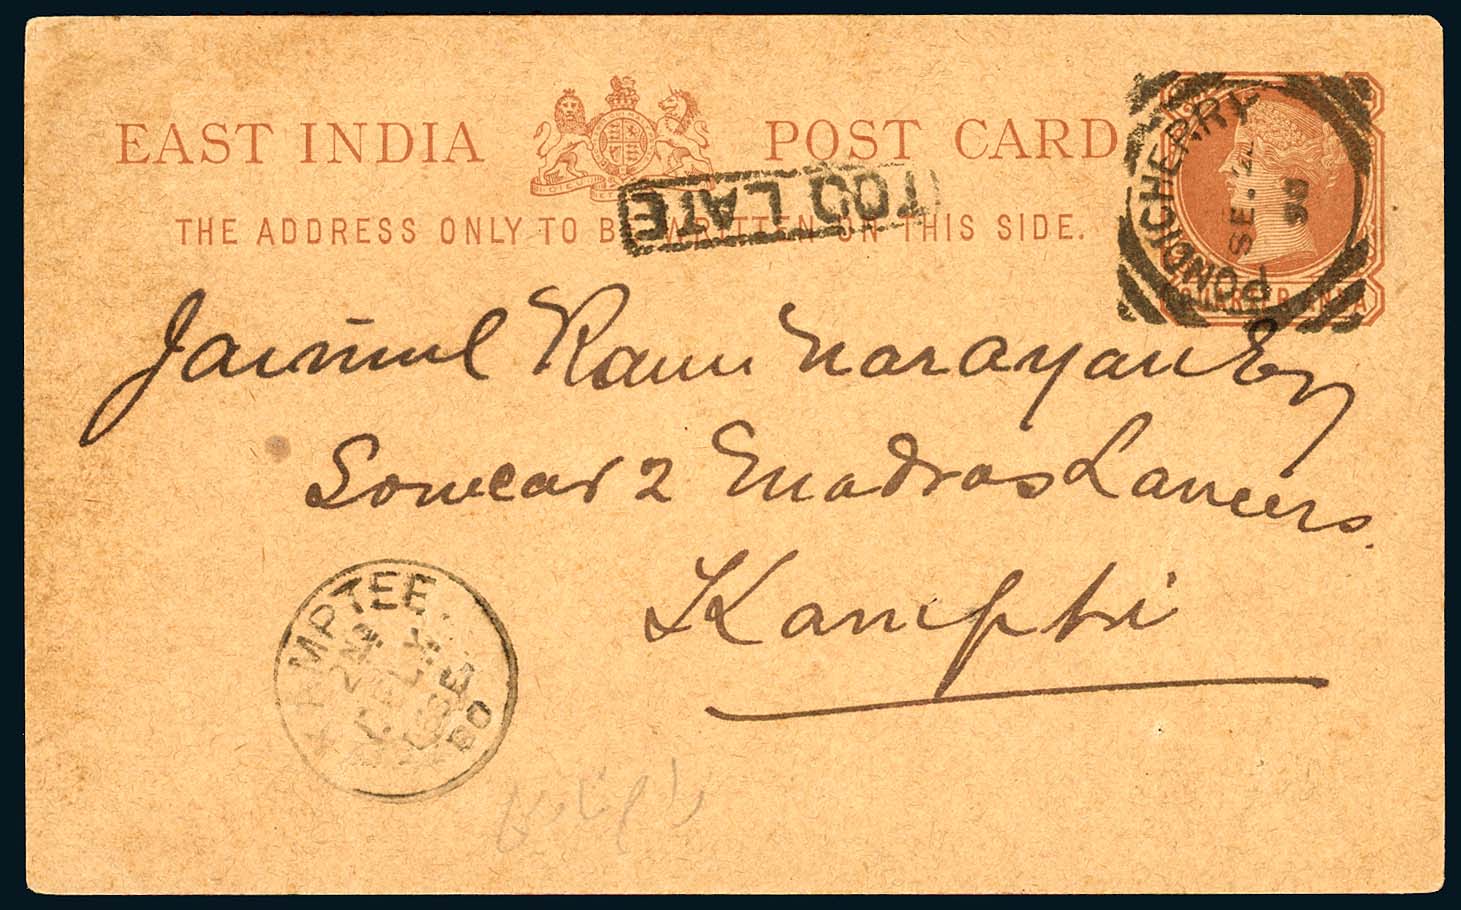 EAST INDIA POST CARD
THE ADDRESS ONLY TO BE WRITTEN ON THIS SIDE.
TOO LATE
PONDICHERRY
SE. 2
90
QUARTER ANNA
Ram Narayan
Sowcar 2 Madras Lancers.
Kampti
KAMPTEE
SE
90